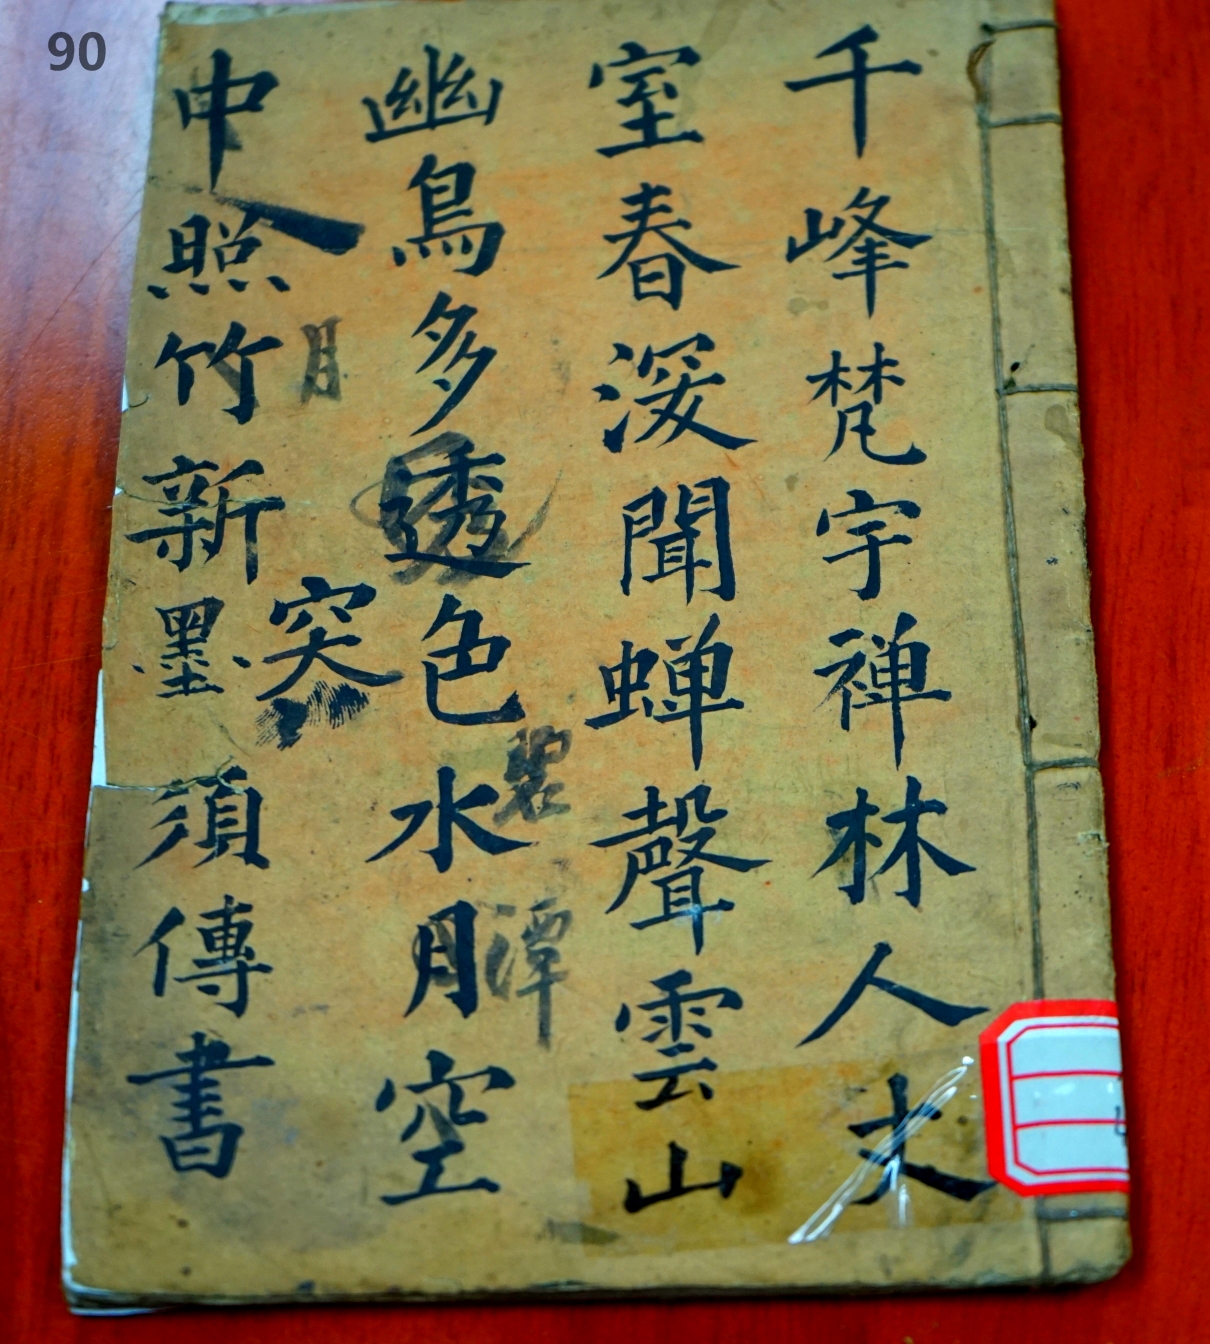 90
千峰梵宇禅林人丈
室春深聞蝉聲雲山
幽鳥多透色水月空
碧潭
突
月
中照竹新墨須傳書